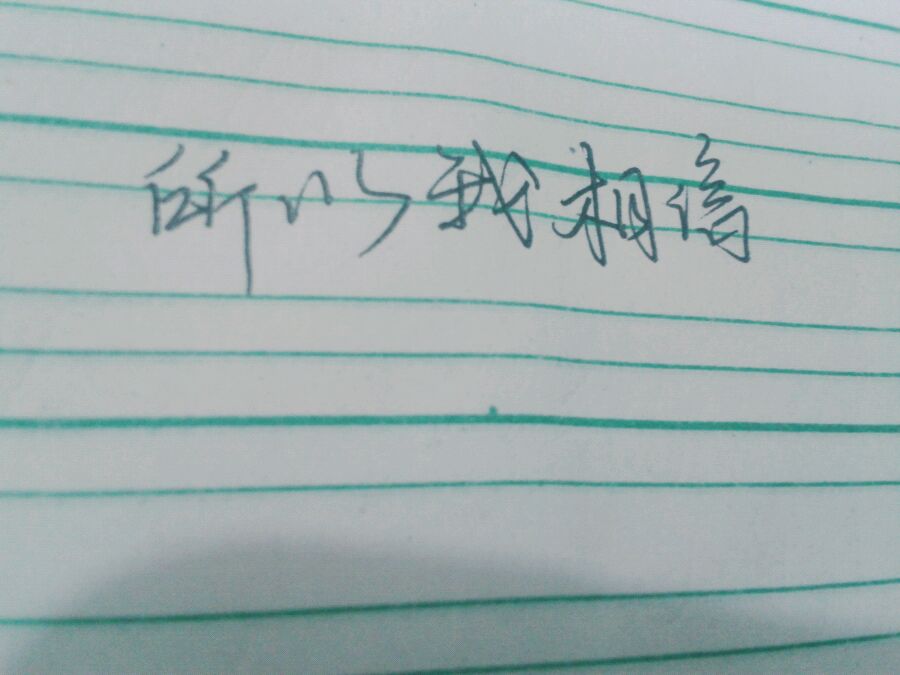 所以我相信